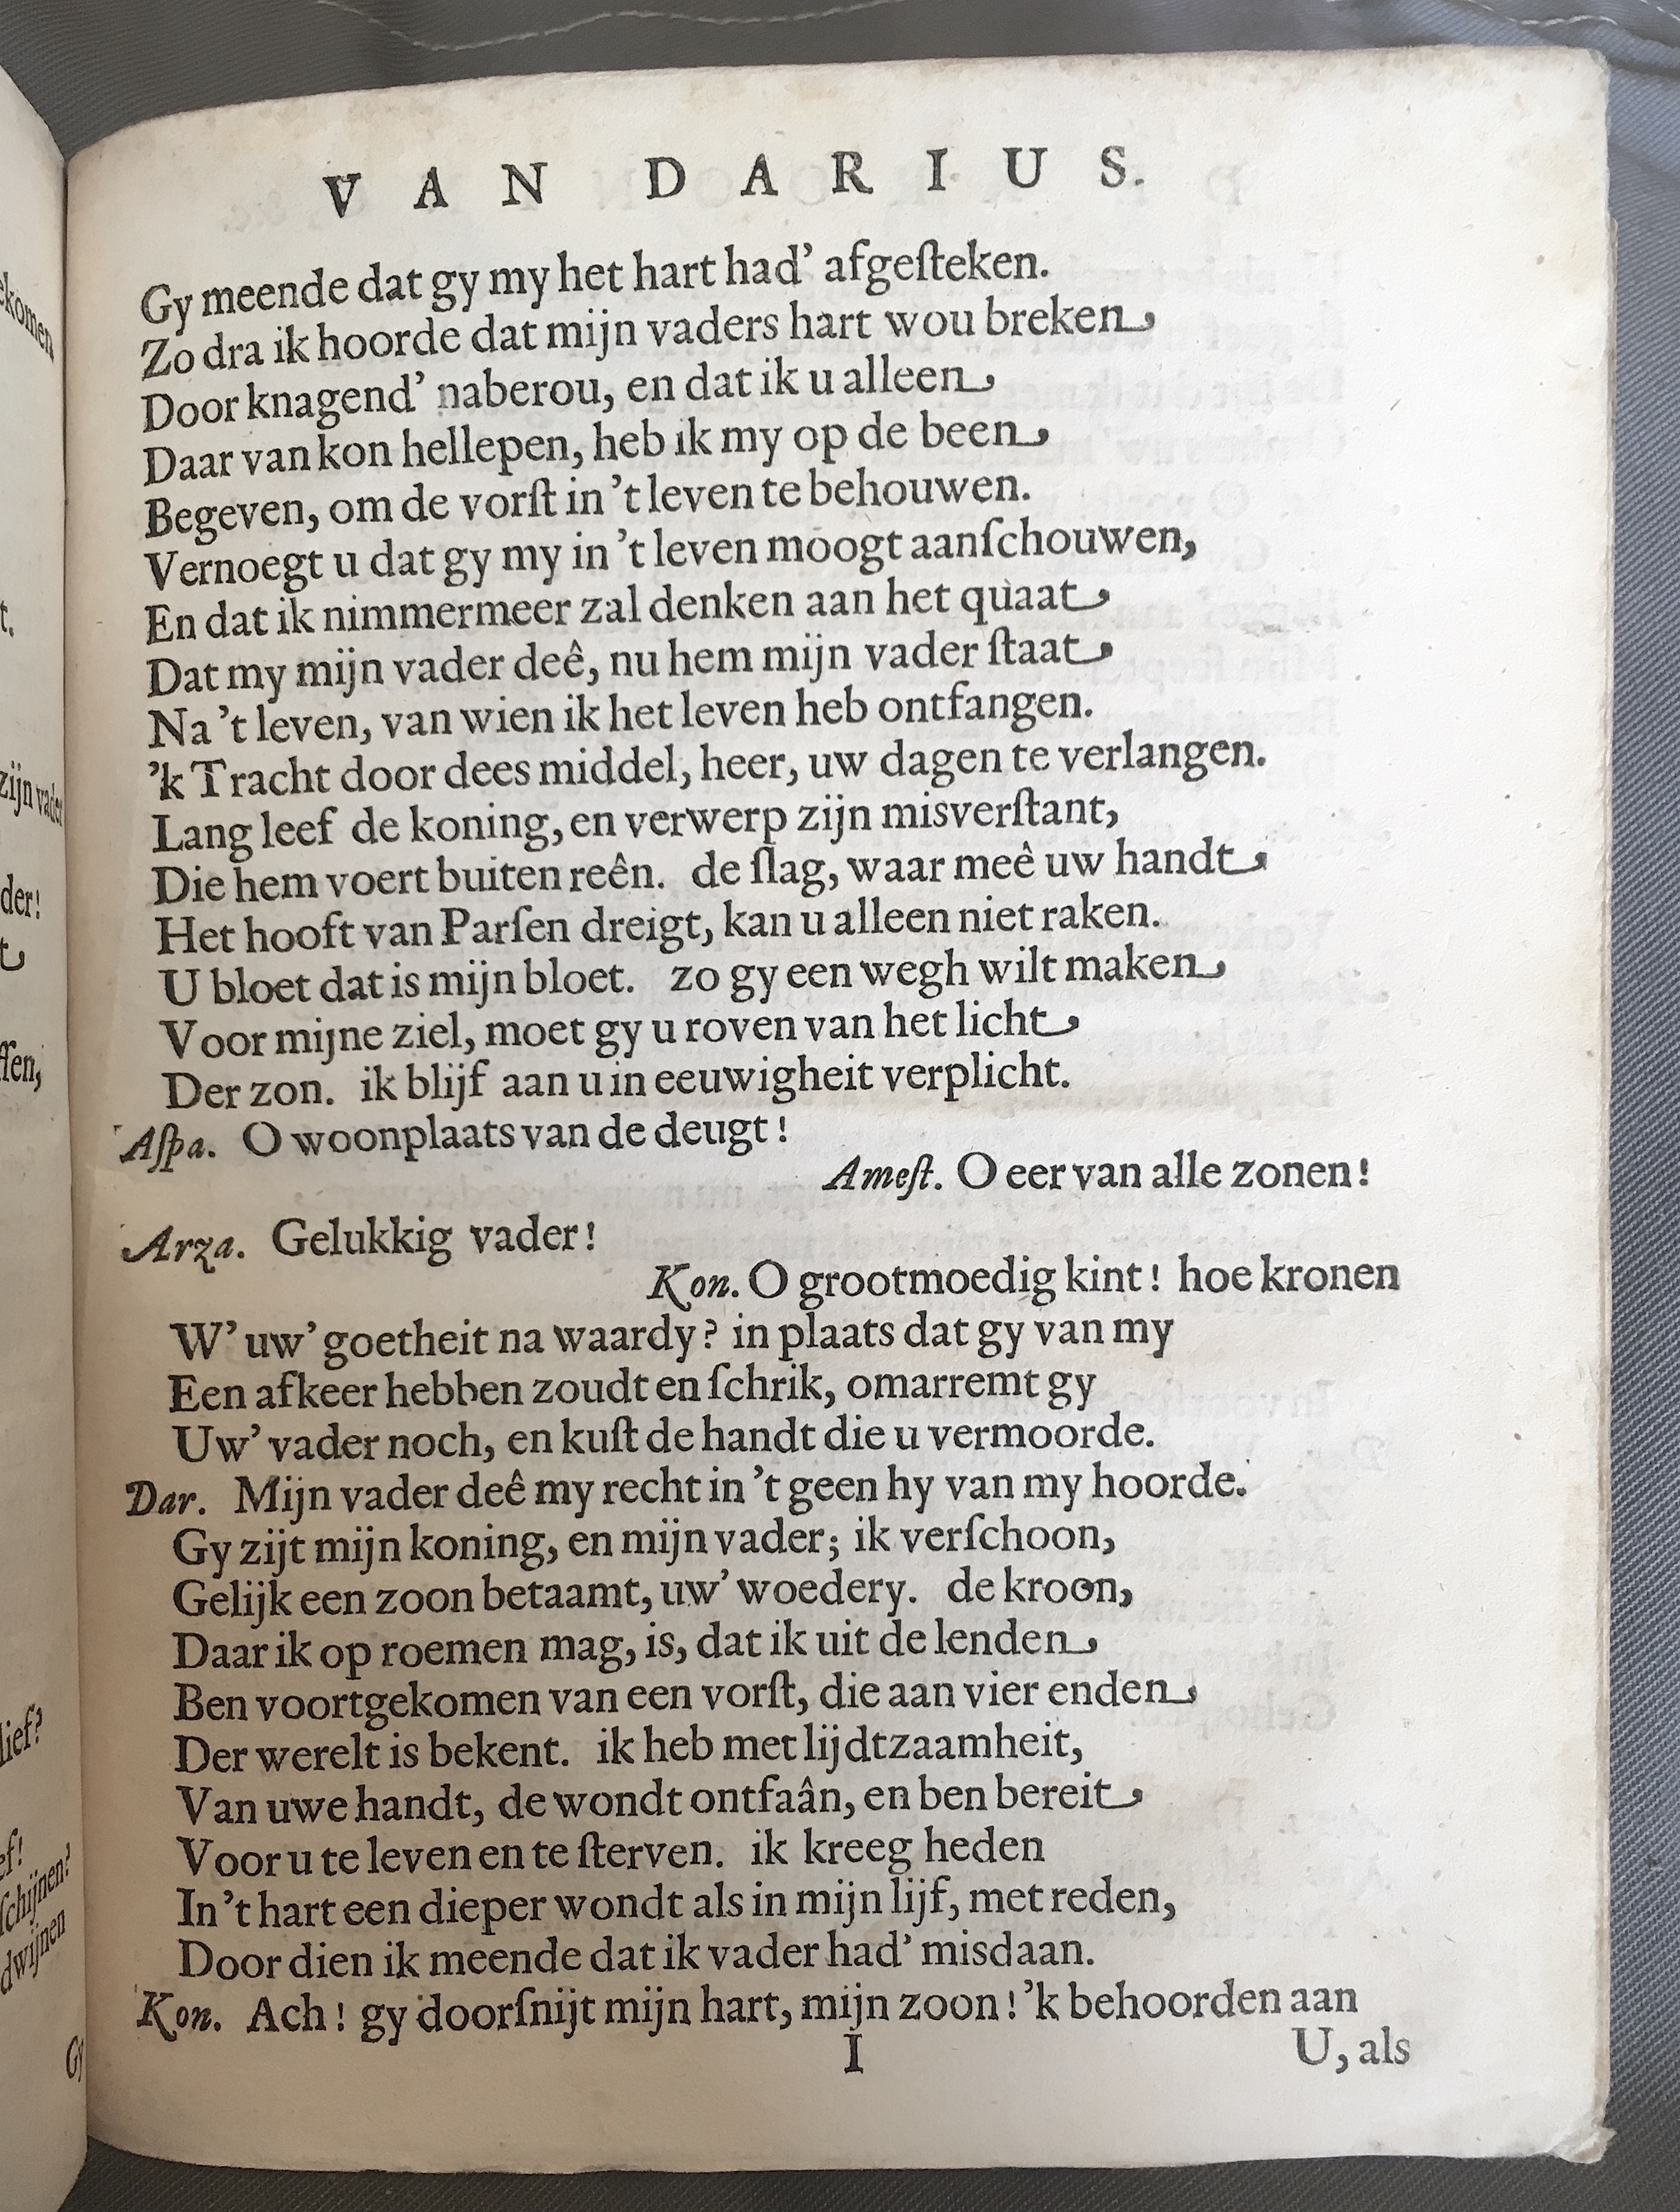 VAN DARIUS.
Gy meende dat gy my het hart had’ afgeſteken.
Zo dra ik hoorde dat mijn vaders hart wou breken
Door knagend’ naberou, en dat ik u alleen
Daar van kon hellepen, heb ik my op de been
Begeven, om de vorſt in ’t leven te behouwen.
Vernoegt u dat gy my in ’t leven moogt aanſchouwen,
En dat ik nimmermeer zal denken aan het quaat
Dat my mijn vader deê, nu hem mijn vader ſtaat
Na ’t leven, van wien ik het leven heb ontfangen.
’k Tracht door dees middel, heer, uw dagen te verlangen.
Lang leef de koning, en verwerp zijn misverſtant,
Die hem voert buiten reên. de ſlag, waar meê uw handt
Het hooft van Parſen dreigt, kan u alleen niet raken.
U bloet dat is mijn bloet. zo gy een wegh wilt maken
Voor mijne ziel, moet gy u roven van het licht
Der zon. ik blijf aan u in eeuwigheit verplicht.
Aſpa. O woonplaats van de deugt!
Ameſt. O eer van alle zonen!
Arza. Gelukkig vader!
Kon. O grootmoedig kint! hoe kronen
W’ uw’ goetheit na waardy? in plaats dat gy van my
Een afkeer hebben zoudt en ſchrik, omarremt gy
Uw’ vader noch, en kuſt de handt die u vermoorde.
Dar. Mijn vader deê my recht in ’t geen hy van my hoorde.
Gy zijt mijn koning, en mijn vader; ik verſchoon,
Gelijk een zoon betaamt, uw’ woedery. de kroon,
Daar ik op roemen mag, is, dat ik uit de lenden
Ben voortgekomen van een vorſt, die aan vier enden
Der werelt is bekent. ik heb met lijdtzaamheit,
Van uwe handt, de wondt ontfaân, en ben bereit
Voor u te leven en te ſterven. ik kreeg heden
In ’t hart een dieper wondt als in mijn lijf, met reden,
Door dien ik meende dat ik vader had’ misdaan.
Kon. Ach! gy doorſnijt mijn hart, mijn zoon! ’k behoorden aan
I
U, als